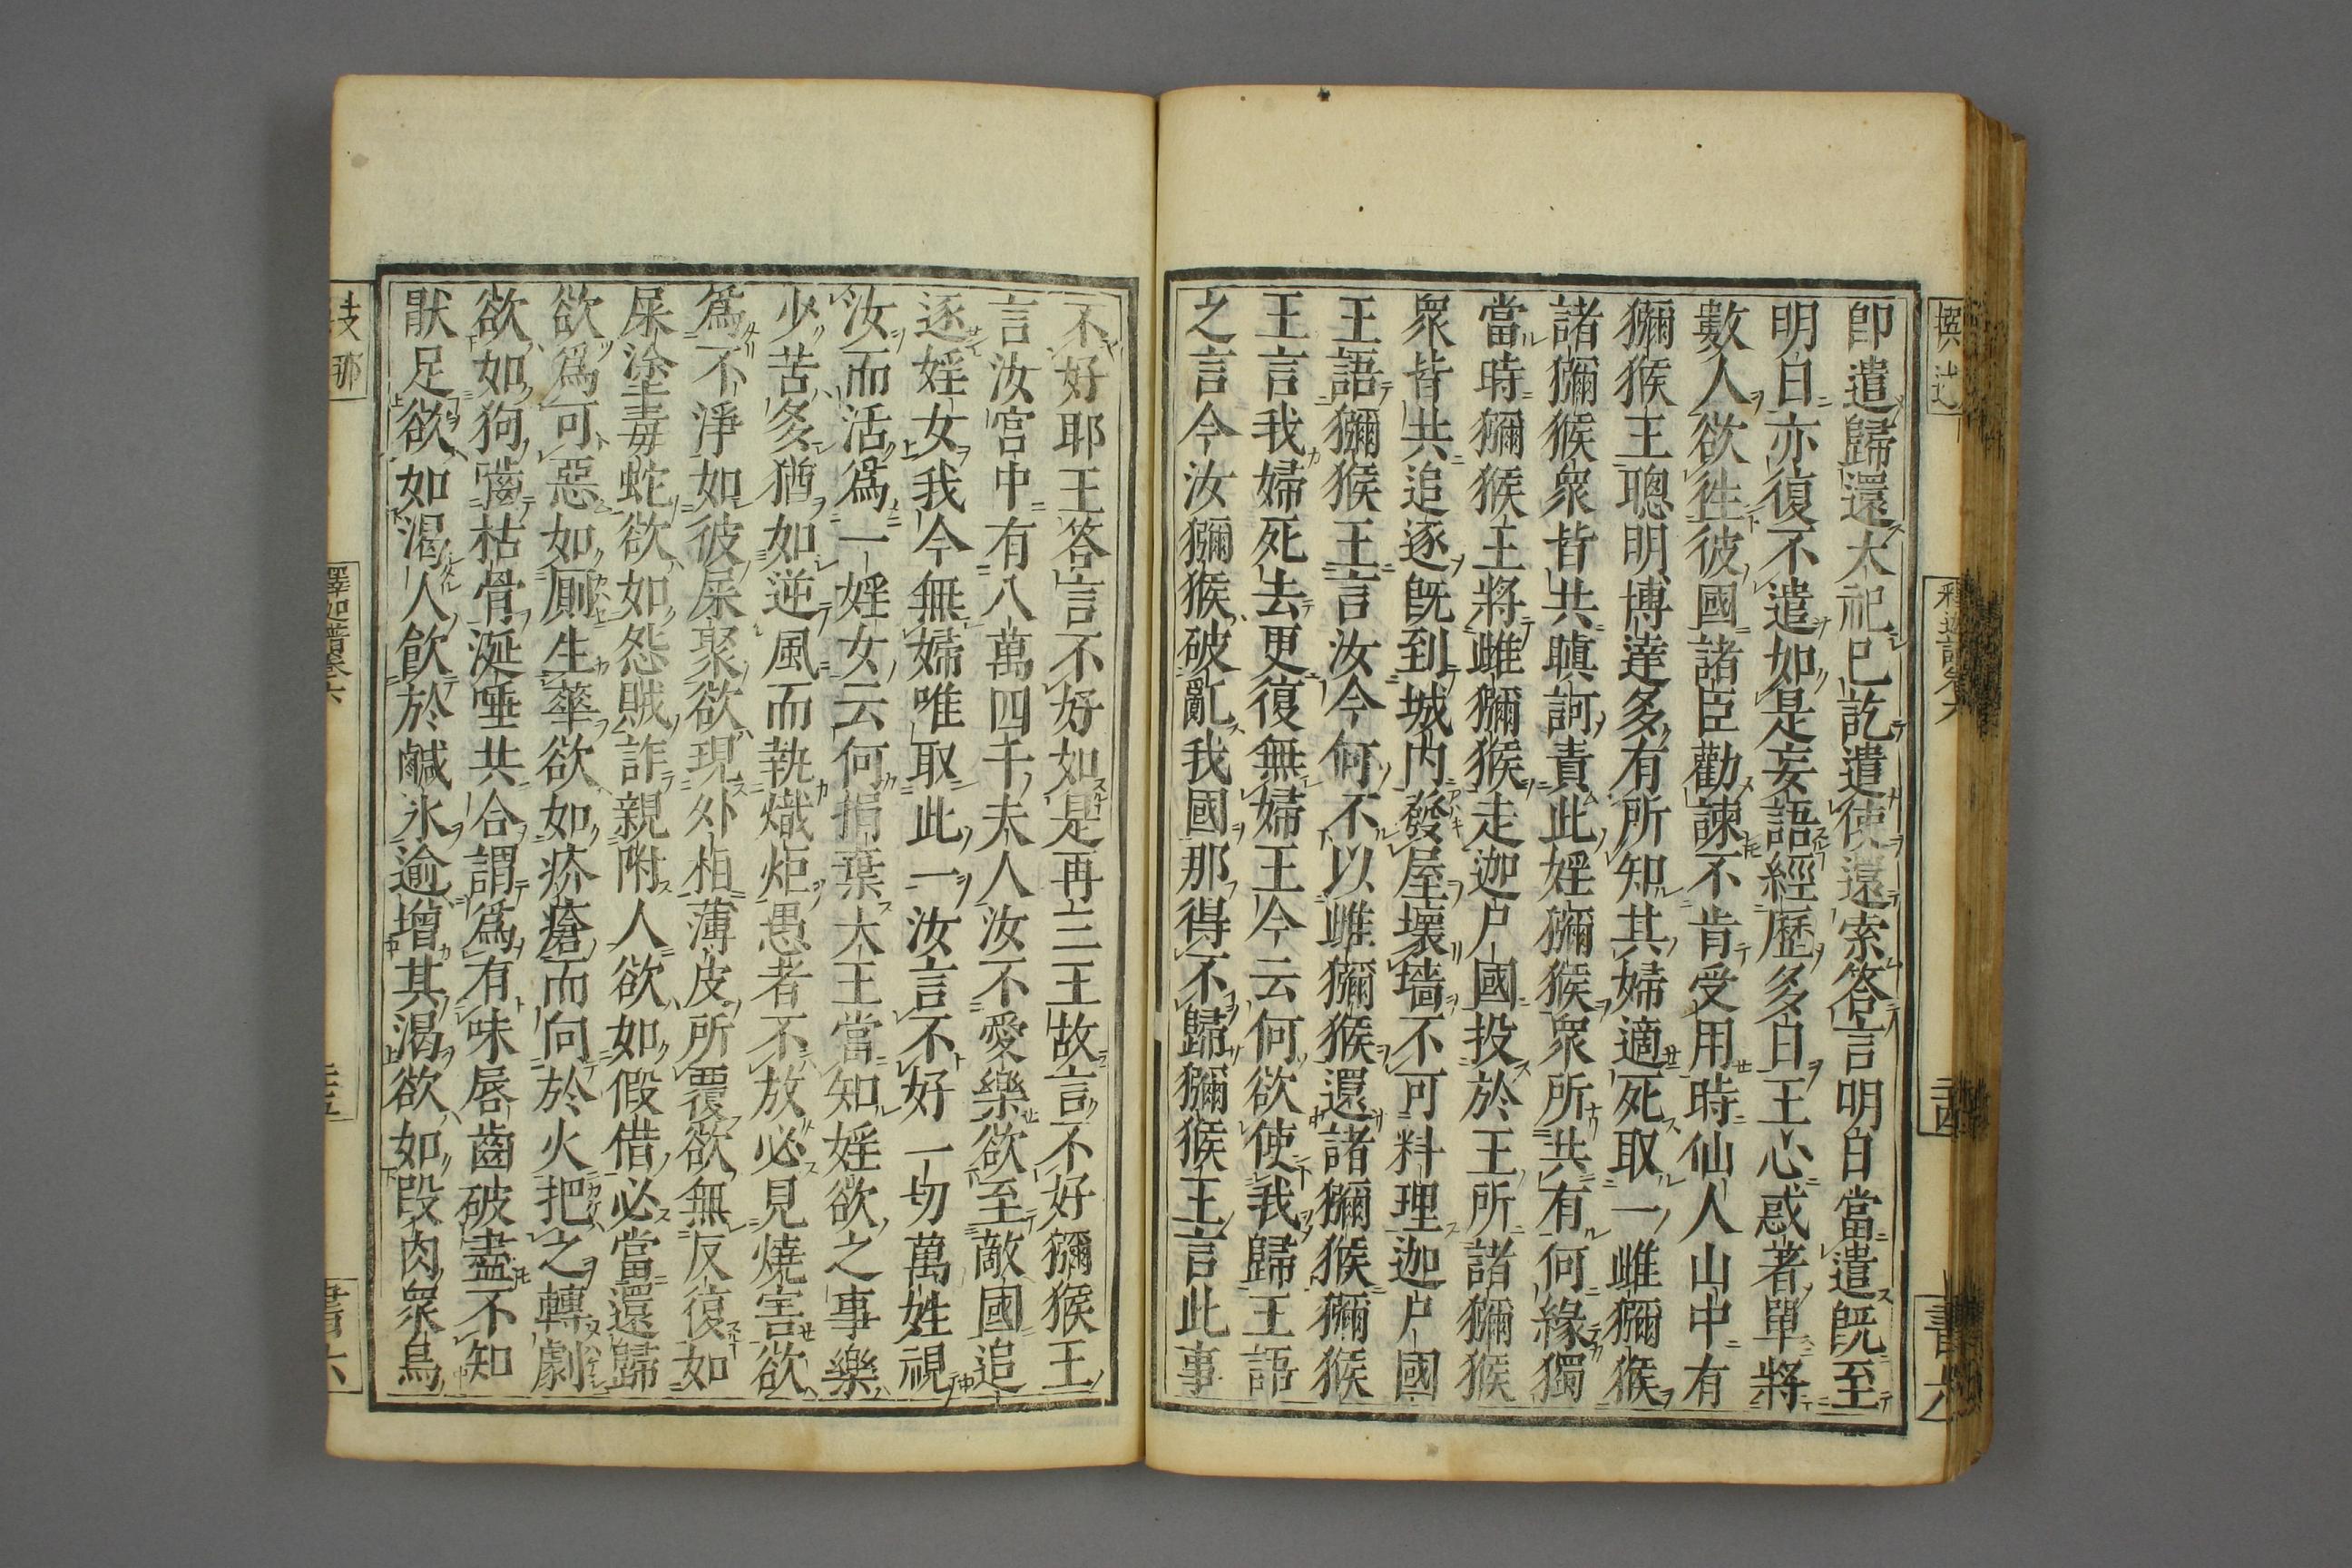 撰述
釋迦譜卷六
二十四
書六
卽遣歸還大祀已訖遣使還索答言明白當遣既至
明白亦復不遣如是妄語經歷多白王心惑著單將
數人欲徃彼國諸臣勸諫不肯受用時仙人山中有
獼猴王聰明博達多有所知其婦適死取一雌獼猴
諸獼猴衆皆共瞋訶責此婬獼猴衆所共有何緣獨
當時獼猴王將雌獼猴走迦尸國投於王所諸獼猴
衆皆共追逐旣到城内發屋壞墻不可料理迦尸國
王語獼猴王言汝今何不以雌獼猴還諸獼猴獼猴
王言我婦死去更復無婦王今云何欲使我歸王語
之言今汝獼猴破亂我國那得不歸獼猴王言此事
不好耶王答言不好如是再三王故言不好獼猴王
言汝宮中有八萬四千夫人汝不愛樂欲至敵國追
逐婬女我今無婦唯取此一汝言不好一切萬姓視
汝而活爲一婬女云何捐棄大王當知婬欲之事樂
少苦多猶如逆風而執熾炬愚者不放必見燒害欲
爲不淨如彼屎聚欲現外相薄皮所覆欲無反復如
屎塗毒蛇欲如怨賊詐親附人欲如假借必當還歸
欲爲可惡如廁生華欲如疥瘡而向於火把之轉劇
欲如狗嚙枯骨涎唾共合謂爲有味唇齒破盡不知
猒足欲如渴人飮於鹹水逾增其渴欲如段肉衆鳥
支那
釋迦譜卷六
二十五
書六